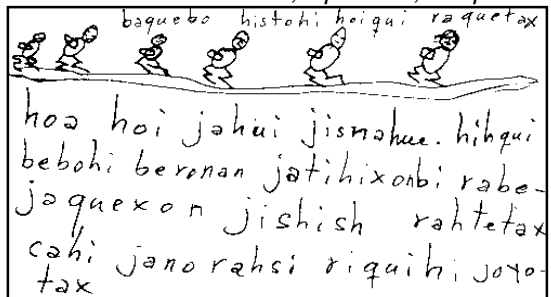 baquebo histohi hoiqui raquetax
hoa hoi jahui jismahue. hihqui
bebohi beronan jatihixonbi rabe-
jaquexon jishish rahtetax
cahi jano rahsi riquihi joyo-
tax